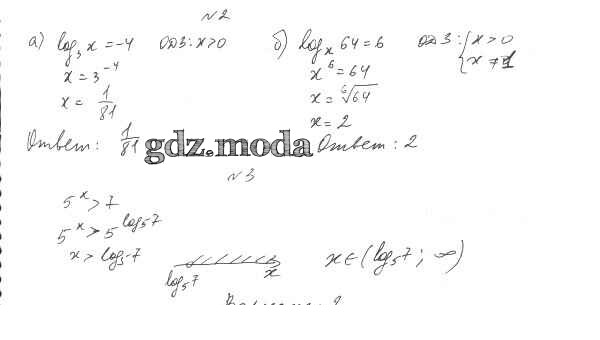 №2
а) log₃ x = -4   ОДЗ: x > 0
x = 3⁻⁴
x = 1/81
Ответ: 1/81
б) logₓ 64 = 6   ОДЗ: { x > 0
x ≠ 1
x⁶ = 64
x = ⁶√64
x = 2
Ответ: 2
gdz.moda
№3
5ˣ > 7
5ˣ > 5^(log₅7)
x > log₅7
log₅7   x
x ∈ (log₅7; ∞)